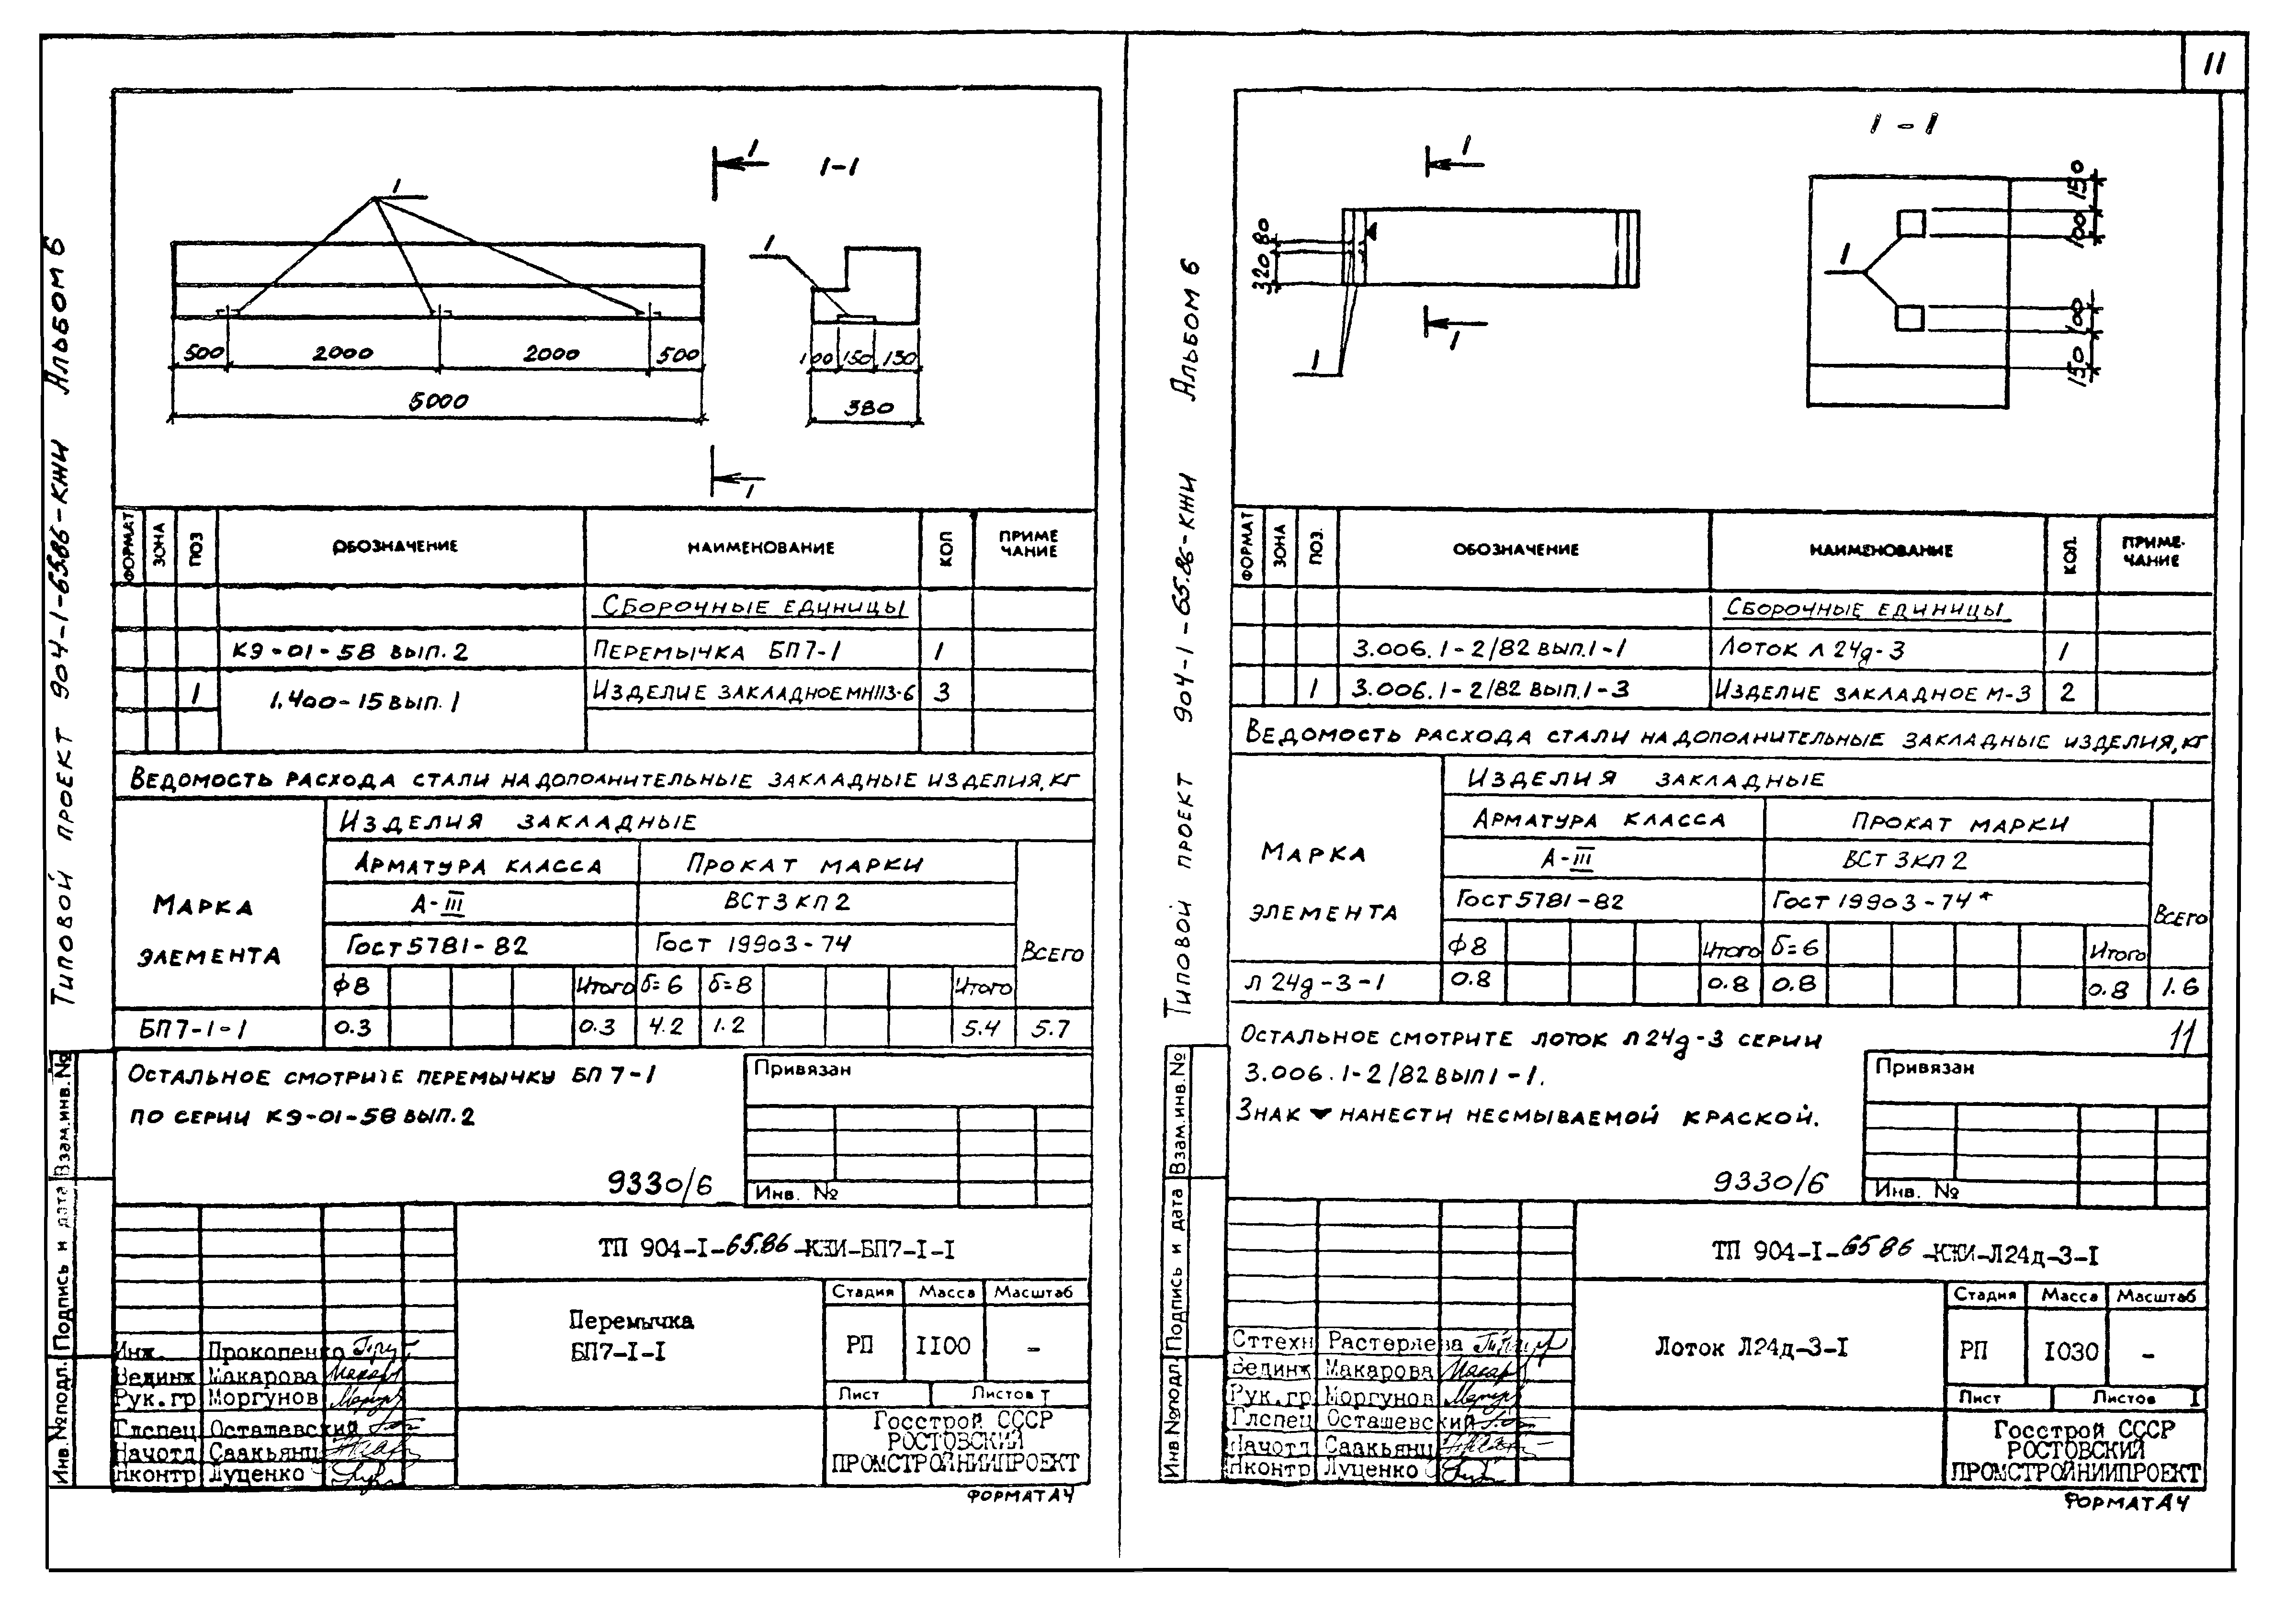 11
Типовой проект 904-1-65.86-КЖИ Альбом 6
1
1
1-1
1
500 2000 2000 500
5000
100 150 130
380
1
ФОРМАТ ЗОНА ПОЗ ОБОЗНАЧЕНИЕ НАИМЕНОВАНИЕ КОЛ ПРИМЕ
ЧАНИЕ
Сборочные единицы
КЭ-01-58 вып.2 Перемычка БП7-1 1
1 1.400-15 вып.1 Изделие закладное МН113-6 3
Ведомость расхода стали на дополнительные закладные изделия, кг
Марка
элемента
Изделия закладные
Арматура класса Прокат марки
А-III ВСт3кп2
Гост 5781-82 Гост 19903-74
Всего
ф8 Итого б=6 б=8 Итого
БП7-1-1 0.3 0.3 4.2 1.2 5.4 5.7
Остальное смотрите перемычку БП7-1
по серии КЭ-01-58 вып.2
9330/6
Привязан
Инв. №
Взам.инв.№
Подпись и дата
Инв.№подл.
ТП 904-I-65.86-КЖИ-БП7-I-I
Перемычка
БП7-I-I
Стадия Масса Масштаб
РП 1100 –
Лист Листов 1
Инж. Прокопенко
Вединж Макарова
Рук.гр Моргунов
Глспец Осташевский
Начотд Саакьянц
Нконтр Луценко
Госстрой СССР
РОСТОВСКИЙ
ПРОМСТРОЙНИИПРОЕКТ
ФОРМАТ А4
Типовой проект 904-1-65.86-КЖИ Альбом 6
1
1-1
320 80
1
1
1
150
100
100
150
ФОРМАТ ЗОНА ПОЗ. ОБОЗНАЧЕНИЕ НАИМЕНОВАНИЕ КОЛ. ПРИМЕ-
ЧАНИЕ
Сборочные единицы
3.006.1-2/82 вып.1-1 Лоток Л24д-3 1
1 3.006.1-2/82 вып.1-3 Изделие закладное М-3 2
Ведомость расхода стали на дополнительные закладные изделия, кг
Марка
элемента
Изделия закладные
Арматура класса Прокат марки
А-III ВСт3кп2
Гост 5781-82 Гост 19903-74*
Всего
ф8 Итого б=6 Итого
Л24д-3-1 0.8 0.8 0.8 0.8 1.6
Остальное смотрите лоток Л24д-3 серии
3.006.1-2/82 вып 1-1.
Знак ▼ нанести несмываемой краской.
11
9330/6
Привязан
Инв. №
Взам.инв.№
Подпись и дата
Инв.№подл.
ТП 904-I-6586-КЖИ-Л24д-3-I
Лоток Л24д-3-I
Стадия Масса Масштаб
РП 1030 –
Лист Листов I
Сттехн Растерлева
Вединж Макарова
Рук.гр Моргунов
Глспец Осташевский
Начотд Саакьянц
Нконтр Луценко
Госстрой СССР
РОСТОВСКИЙ
ПРОМСТРОЙНИИПРОЕКТ
ФОРМАТ А4